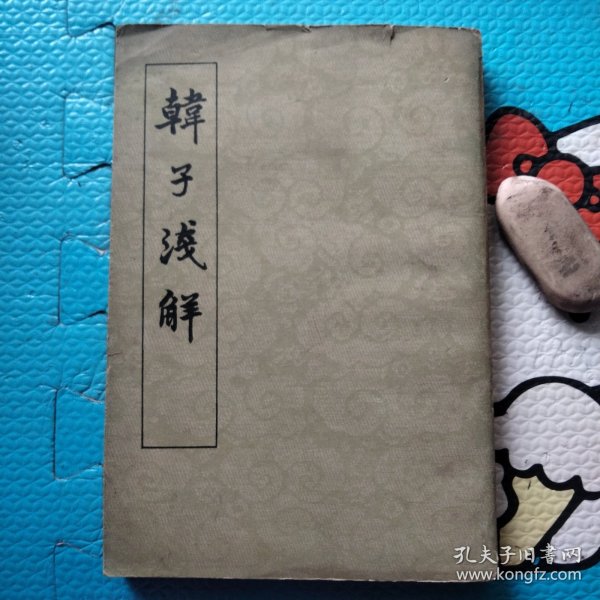 韓子淺解
孔夫子旧书网
www.kongfz.com